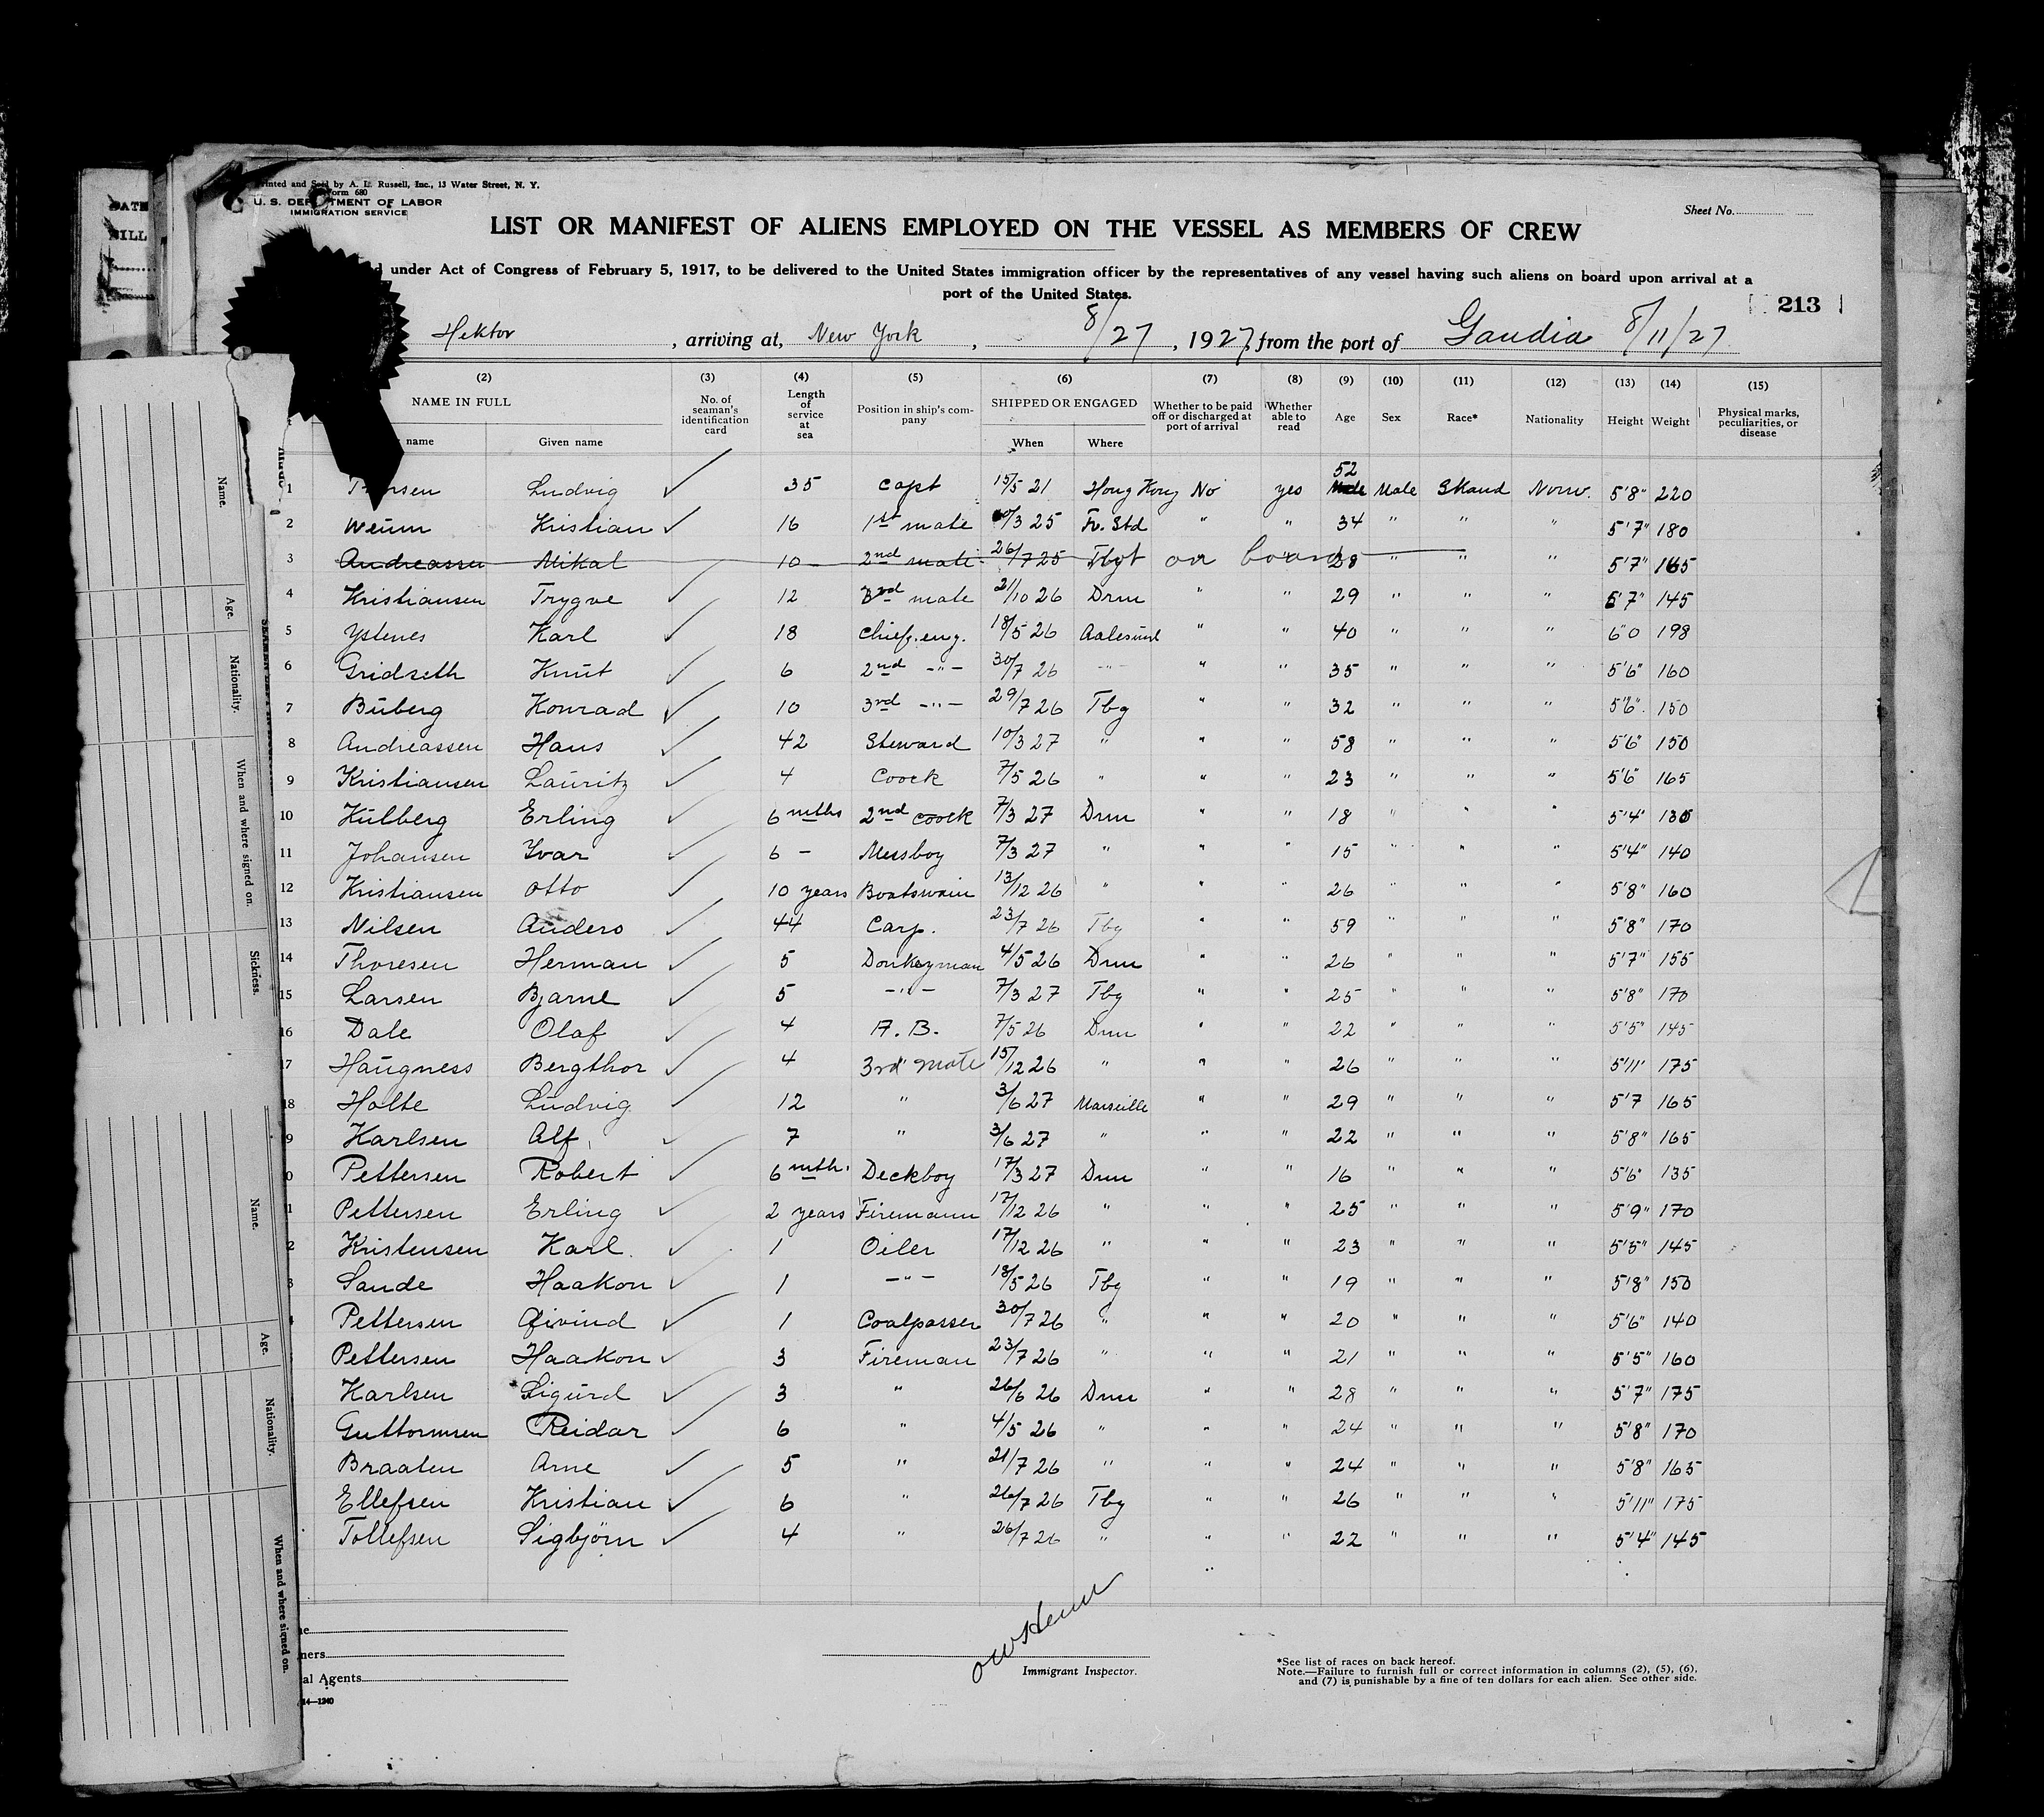 Printed and Sold by A. L. Russell, Inc., 13 Water Street, N. Y.
Form 680
U. S. DEPARTMENT OF LABOR
IMMIGRATION SERVICE
Sheet No.
LIST OR MANIFEST OF ALIENS EMPLOYED ON THE VESSEL AS MEMBERS OF CREW
under Act of Congress of February 5, 1917, to be delivered to the United States immigration officer by the representatives of any vessel having such aliens on board upon arrival at a
port of the United States.
213
Hektor , arriving at, New York , 8/27 , 1927, from the port of Gandia 8/11/27
(2) (3) (4) (5) (6) (7) (8) (9) (10) (11) (12) (13) (14) (15)
NAME IN FULL No. of seaman's identification card Length of service at sea Position in ship's company SHIPPED OR ENGAGED Whether to be paid off or discharged at port of arrival Whether able to read Age Sex Race* Nationality Height Weight Physical marks, peculiarities, or disease
name Given name When Where
1 Ludvig ✓ 35 Capt 15/5 21 Hong Kong No yes 52 Male Skand Norw. 5'8" 220
2 Weium Kristian ✓ 16 1st mate /3 25 Fr. Std " " 34 " " " 5'7" 180
3 Andreassen Mikal 10 2nd mate 26/7 25 Tbg not on board 28 " " " 5'7" 165
4 Kristiansen Trygve ✓ 12 3rd mate 21/10 26 Drm " " 29 " " " 5'7" 145
5 Ystenes Karl ✓ 18 Chief. eng. 18/5 26 Aalesund " " 40 " " " 6"0 198
6 Gridseth Knut ✓ 6 2nd -"- 30/7 26 -"- " " 35 " " " 5'6" 160
7 Buberg Konrad ✓ 10 3rd -"- 29/7 26 Tbg " " 32 " " " 5'6" 150
8 Andreassen Hans ✓ 42 Steward 10/3 27 " " " 58 " " " 5'6" 150
9 Kristiansen Lauritz ✓ 4 Coock 7/5 26 " " " 23 " " " 5'6" 165
10 Kulberg Erling ✓ 6 mths 2nd coock 7/3 27 Drm " " 18 " " " 5'4" 130
11 Johansen Ivar ✓ 6 - Messboy 7/3 27 " " " 15 " " " 5'4" 140
12 Kristiansen Otto ✓ 10 years Boatswain 13/12 26 " " " 26 " " " 5'8" 160
13 Nilsen Anders ✓ 44 Carp. 23/7 26 Tbg " " 59 " " " 5'8" 170
14 Thoresen Herman ✓ 5 Donkeyman 4/5 26 Drm " " 26 " " " 5'7" 155
15 Larsen Bjarne ✓ 5 -"- 7/3 27 Tbg " " 25 " " " 5'8" 170
16 Dale Olaf ✓ 4 A. B. 7/5 26 Drm " " 22 " " " 5'5" 145
17 Haugness Bergthor ✓ 4 3rd mate 15/12 26 " " " 26 " " " 5'11" 175
18 Holte Ludvig ✓ 12 " 3/6 27 Marseille " " 29 " " " 5'7 165
9 Karlsen Alf ✓ 7 " 3/6 27 " " " 22 " " " 5'8" 165
0 Pettersen Robert ✓ 6 mth. Deckboy 17/3 27 Drm " " 16 " " " 5'6" 135
1 Pettersen Erling ✓ 2 years Firemann 17/12 26 " " " 25 " " " 5'9" 170
2 Kristensen Karl ✓ 1 Oiler 17/12 26 " " " 23 " " " 5'5" 145
3 Sande Haakon ✓ 1 -"- 18/5 26 Tbg " " 19 " " " 5'8" 150
Pettersen Øivind ✓ 1 Coalpasser 30/7 26 " " " 20 " " " 5'6" 140
Pettersen Haakon ✓ 3 Fireman 23/7 26 " " " 21 " " " 5'5" 160
Karlsen Sigurd ✓ 3 " 26/6 26 Drm " " 28 " " " 5'7" 175
Guttormsen Reidar ✓ 6 " 4/5 26 " " " 24 " " " 5'8" 170
Braaten Arne ✓ 5 " 21/7 26 " " " 24 " " " 5'8" 165
Ellefsen Kristian ✓ 6 " 26/7 26 Tbg " " 26 " " " 5'11" 175
Tollefsen Sigbjörn ✓ 4 " 26/7 26 " " " 22 " " " 5'4" 145
al Agents
14—1240
Immigrant Inspector.
*See list of races on back hereof.
Note.—Failure to furnish full or correct information in columns (2), (5), (6),
and (7) is punishable by a fine of ten dollars for each alien. See other side.
Name.
Age.
Nationality.
When and where signed on.
Sickness.
Name.
Age.
Nationality.
When and where signed on.